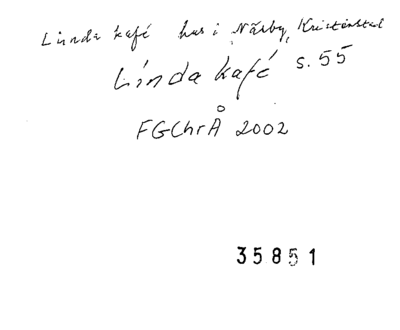 Linda kafé hus i Näsby, Kristianstad
Linda kafé s. 55
FGChrÅ 2002
35851